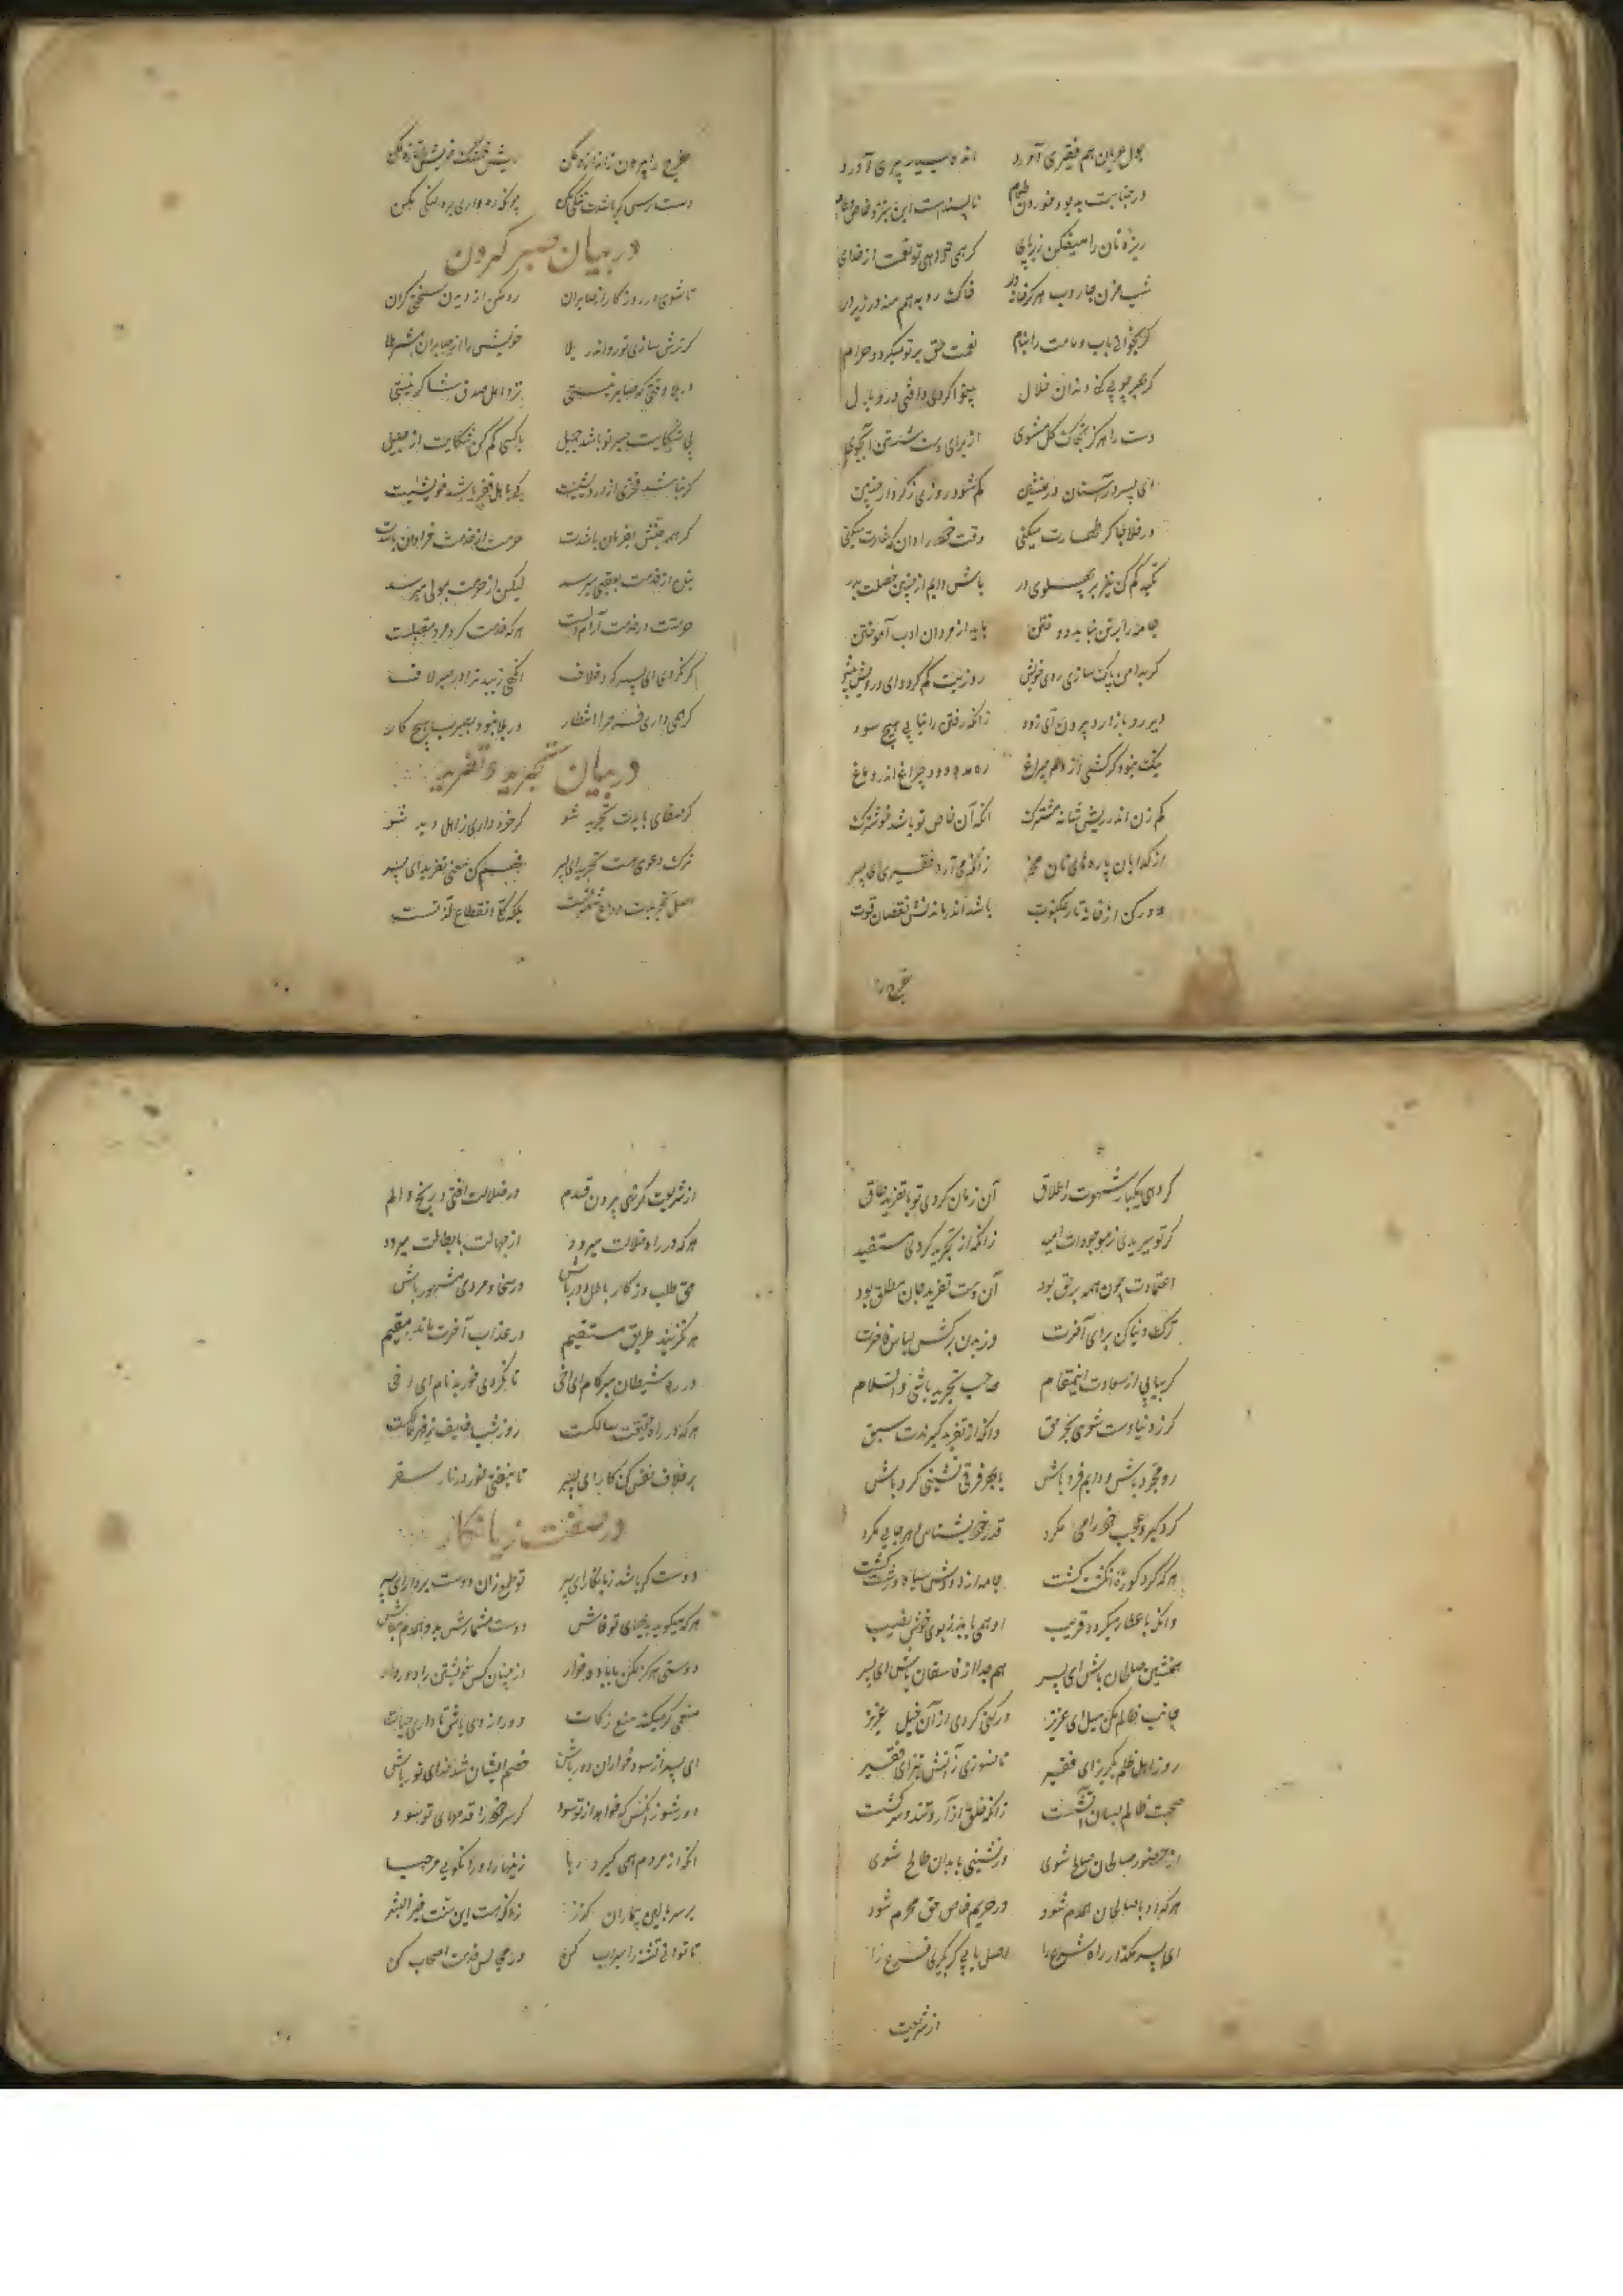 بول عریان هم فقیری آورد اندوه بسیار پیری آورد
در جنابت بد بود خوردن طعام ناپسندست این بنزد خاص و عام
ریزه نان را میفکن زیر پای گر همی خواهی تو نعمت از خدای
شب مزن جاروب هرگز خانه در خاک روبه هم منه در زیر در
گر بخوانی باب و مامت را بنام نعمت حق بر تو میگردد حرام
گر بهر چوبی کنی دندان خلال بینوا گردی و افتی در وبال
دست را هرگز بخاک و گل مشوی از برای دست شستن آبجوی
ای پسر در آستان در منشین کم شود روزی ز کردار چنین
در خلا جا گر طهارت میکنی وقت خود را دان که غارت میکنی
تکیه کم کن نیز بر پهلوی در باش دایم از چنین خصلت بدر
جامه را بر تن نباید دوختن باید از مردان ادب آموختن
گر بدامن پاک سازی روی خویش روزیت کم گردد ای درویش بیش
دیر رو بازار و بیرون آی زود زانکه رفتن را نیابی هیچ سود
نیک نبود گر کشی از دم چراغ ره مده دود چراغ اندر دماغ
کم زن اندر ریش شانه مشترک آنکه آن خاص تو باشد خوشترک
از گدایان پاره‌های نان مخر زانکه می‌آرد فقیری ای پسر
دور کن از خانه تار عنکبوت باشد اندر ماندنش نقصان قوت
خرج را
خرج را بیرون ز اندازه مکن ریش خشک خویش را تازه مکن
دست رس گر باشدت تنگی مکن چونکه ره واری برو لنگی مکن
در بیان صبر کردن
تا شوی در روزگار از صابران رو مکن از دیدن سختی گران
گر ترش سازی تو رو اندر بلا خویش را از صابران مشمر هلا
در بلا وقتی که صابر نیستی نزد اهل صدق شاکر نیستی
بی شکایت صبر تو باشد جمیل با کسی کم کن شکایت از جلیل
گر نباشد فخری از درویشیت کی با اهل فقر باشد خویشیت
گر همه جنبش بفرمان بایدت حرمت از خدمت فراوان بایدت
بنده از خدمت بعقبی میرسد لیکن از حرمت بمولی میرسد
حرمتت در خدمت آرام دلست هر که خدمت کرد مرد مقبلست
گر نگردی ای پسر گرد خلاف آنگهی زیبد ترا در صبر لاف
گر همی داری فرج را انتظار در بلا نبود بصبرت هیچ کار
در بیان تجرید و تفرید
گر صفای بایدت تجرید شو گر خرد داری ز اهل دید شو
ترک دعوی هست تجرید ای پسر فهم کن معنی تفرید ای پسر
اصل تجریدت وداع شهوتست بلکه کلی انقطاع لذتست
گر دهی یکبار شهوت را طلاق آن زمان گردی تو با تفرید طاق
گر تو ببریدی ز موجودات امید زانکه از تجرید گردی مستفید
اعتمادت چون همه بر حق بود آن دمت تفرید جان مطلق بود
ترک دنیا کن برای آخرت وز بدن برکش لباس فاخرت
گر بیابی از سعادت این مقام صاحب تجرید باشی والسلام
گر ز دنیا دست شوی بحر حق دانکه از تفرید گیرندت سبق
رو مجرد باش و دایم فرد باش بهر فرقی نشینی گرد باش
گرد کبر و عجب خود رائی مگرد قدر خود بشناس و هر جائی مگرد
هر که گرد کوره انگشت گشت جامه از دودش سیاه و زشت گشت
وانکه با عطار میگردد قریب او همی یابد ز بوی خوش نصیب
همنشین صالحان باش ای پسر هم جدا از فاسقان باش ای پسر
جانب ظالم مکن میل ای عزیز ور کنی گردی از آن خیل ای عزیز
رو ز اهل ظلم بگریز ای فقیر تا نسوزی ز آتش تیز ای فقیر
صحبت ظالم بسان آتشست زانکه خلق آزار و تند و سرکشست
از حضور صالحان صالح شوی ور نشینی با بدان طالح شوی
هر که او با صالحان همدم شود در حریم خاص حق محرم شود
ای پسر مگذار راه شرع را اصل یابی گر بگیری فرع را
از شریعت
از شریعت گر نهی بیرون قدم در ضلالت افتی و رنج و الم
هر که در راه ضلالت میرود از جهالت با بطالت میرود
حق طلب وز کار باطل دور باش در سخا و مردمی مشهور باش
هر که نگزیند طریق مستقیم در عذاب آخرت ماند مقیم
در ره شیطان منه گام ای اخی تا نگردی خوار و بدنام ای اخی
هر که در راه حقیقت سالکست روز و شب خایف ز قهر مالکست
بر خلاف نفس کن کار ای پسر تا نیفتی خوار در نار سقر
در صفت زیانکار
دوست گر باشد زیانکار ای پسر تو طمع زان دوست بردار ای پسر
هر که میگوید بدیهای تو فاش دوست مشمارش بدو همدم مباش
دوستی هرگز مکن با باده خوار از چنان کس خویشتن را دور دار
منعمی گر میکند منع زکات دور از وی باش تا داری حیات
ای پسر از سود خواران دور باش خصم ایشان شد خدای تو باش
دور شو زانکس که خواهد از تو سود گر سر خود را قدمهای تو سود
آنکه از مردم همی گیرد ربا زینهار او را نگوئی مرحبا
بر سر بالین بیماران گذر زانکه هست این سنت خیر البشر
تا توانی تشنه را سیراب کن در مجالس خدمت اصحاب کن